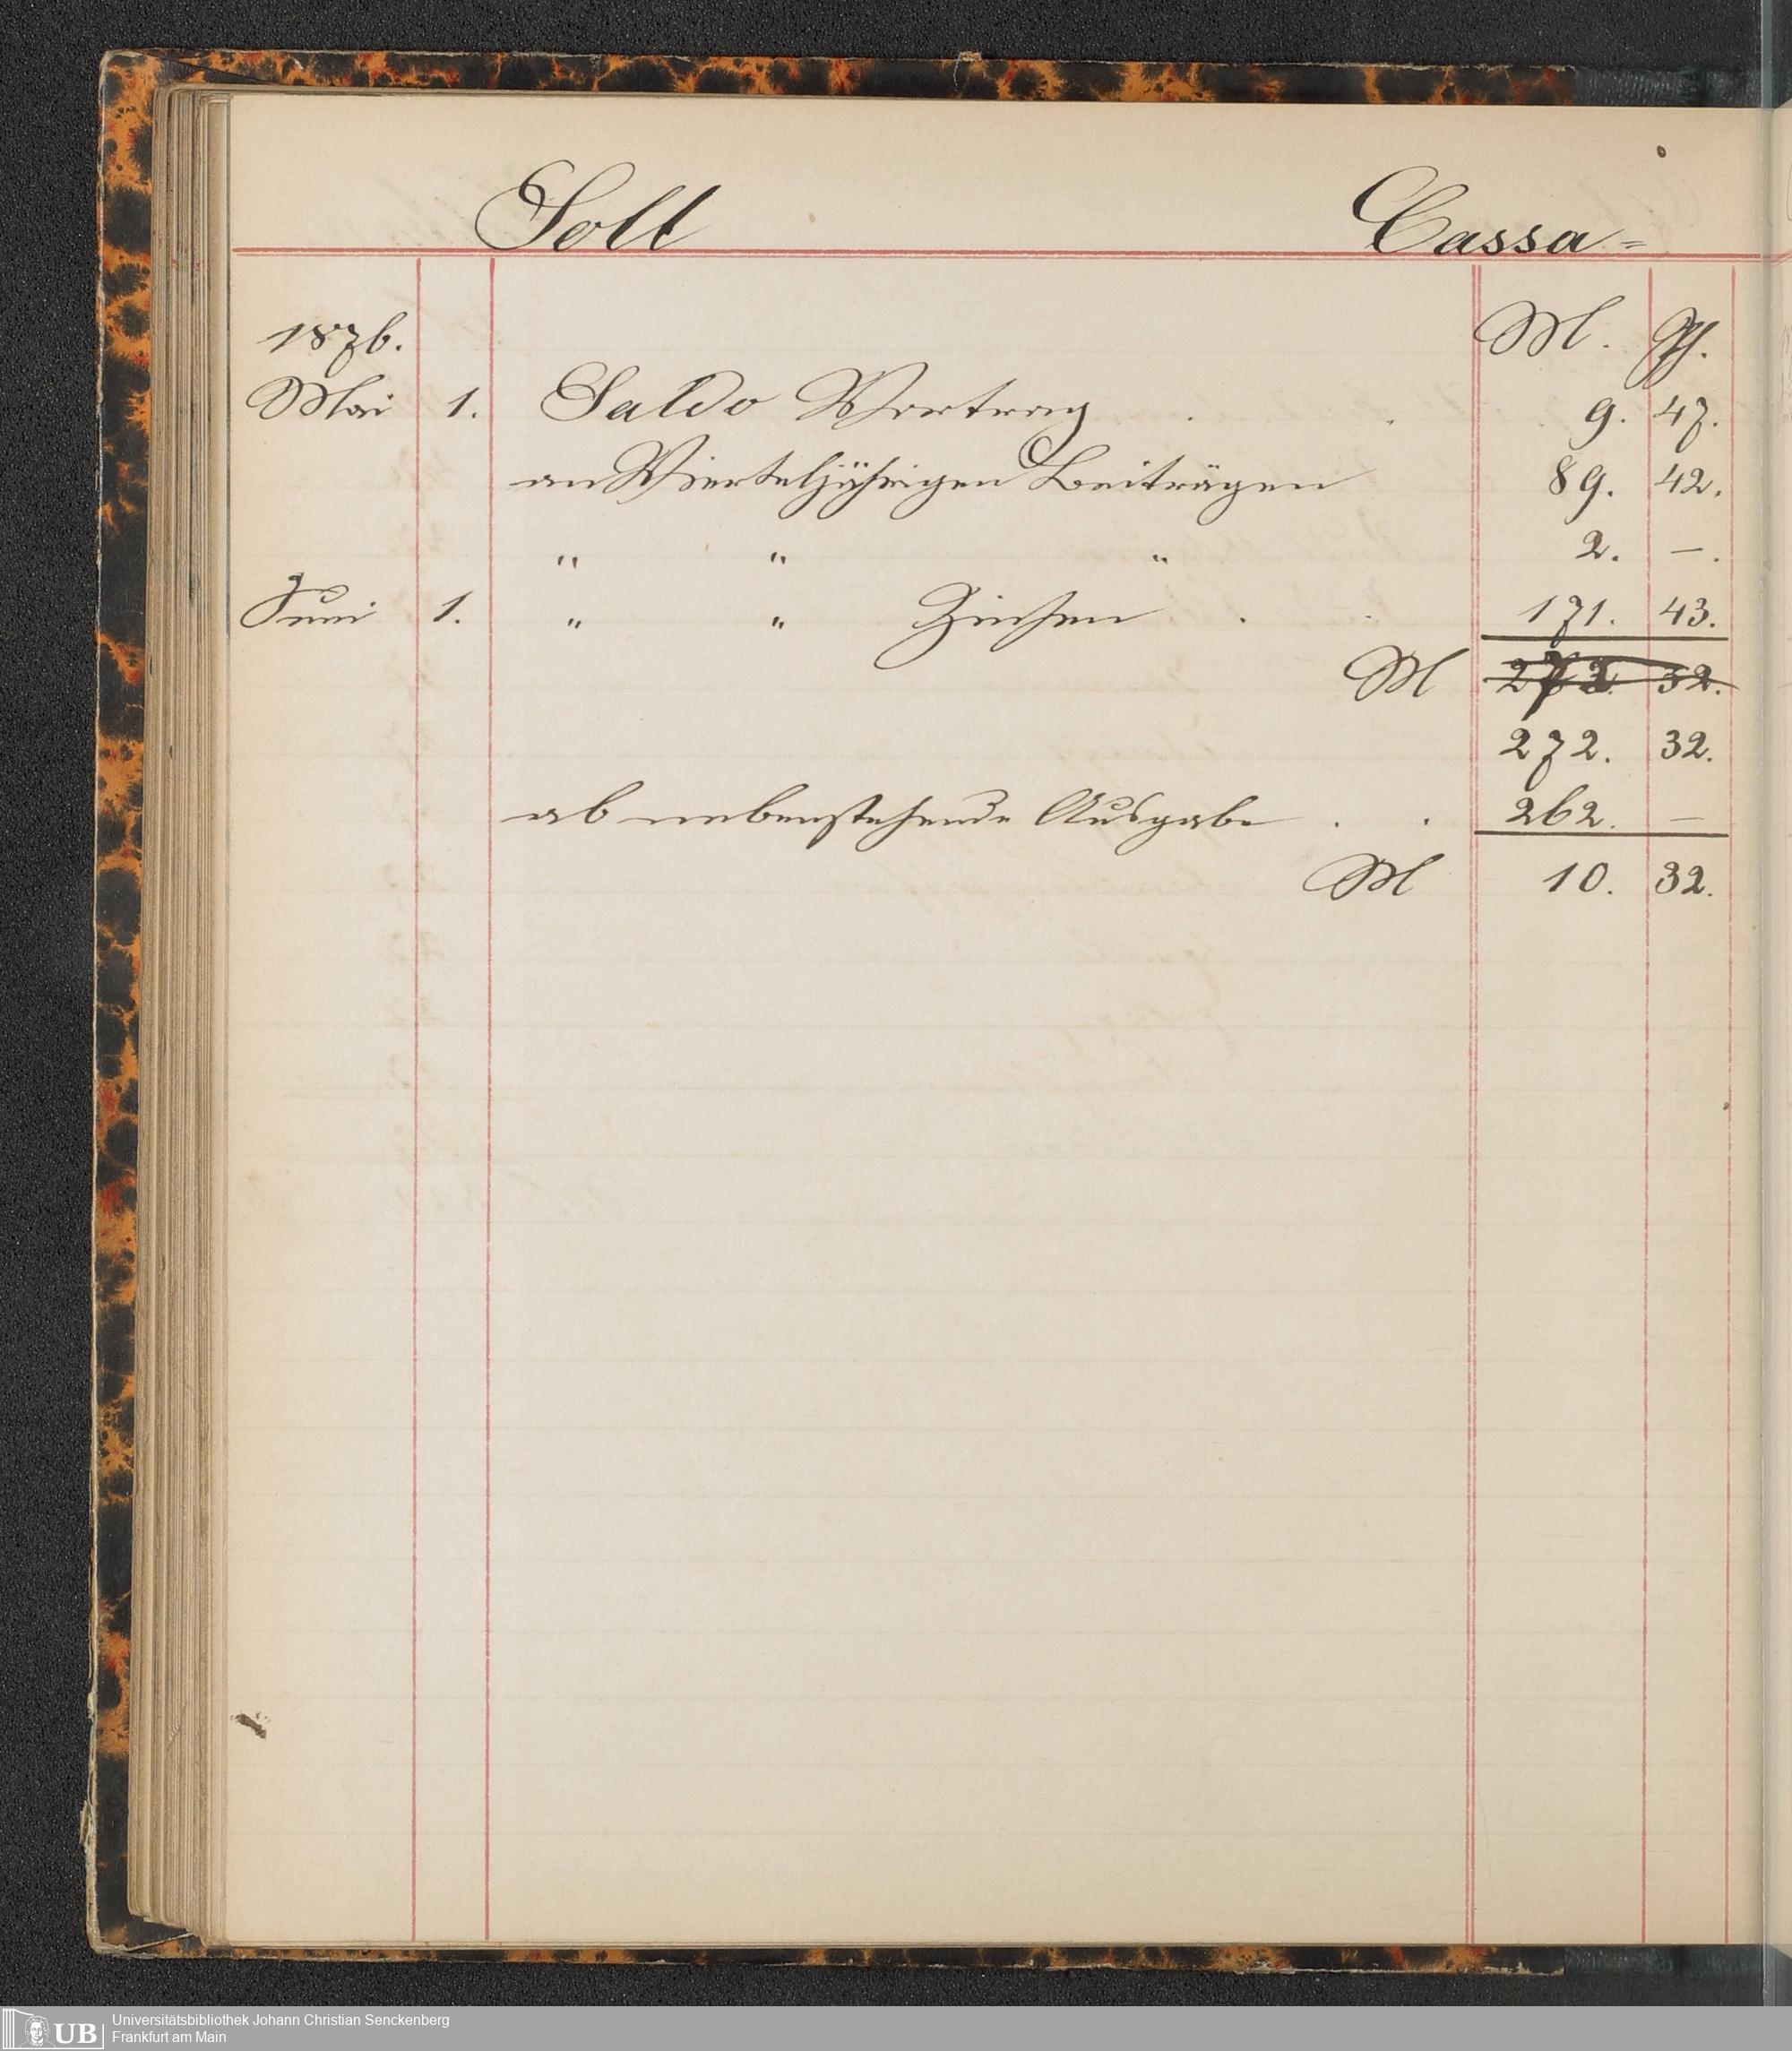 Soll Cassa=
1876. M. Pf.
Mai 1. Saldo Vortrag . . 9. 47.
an Vierteljährigen Beiträgen 89. 42.
" " " 2. —.
Juni 1. " " Zinsen . . 171. 43.
M 32.
272. 32.
ab nebenstehende Ausgabe . . 262. —
M 10. 32.
UB Universitätsbibliothek Johann Christian Senckenberg
Frankfurt am Main